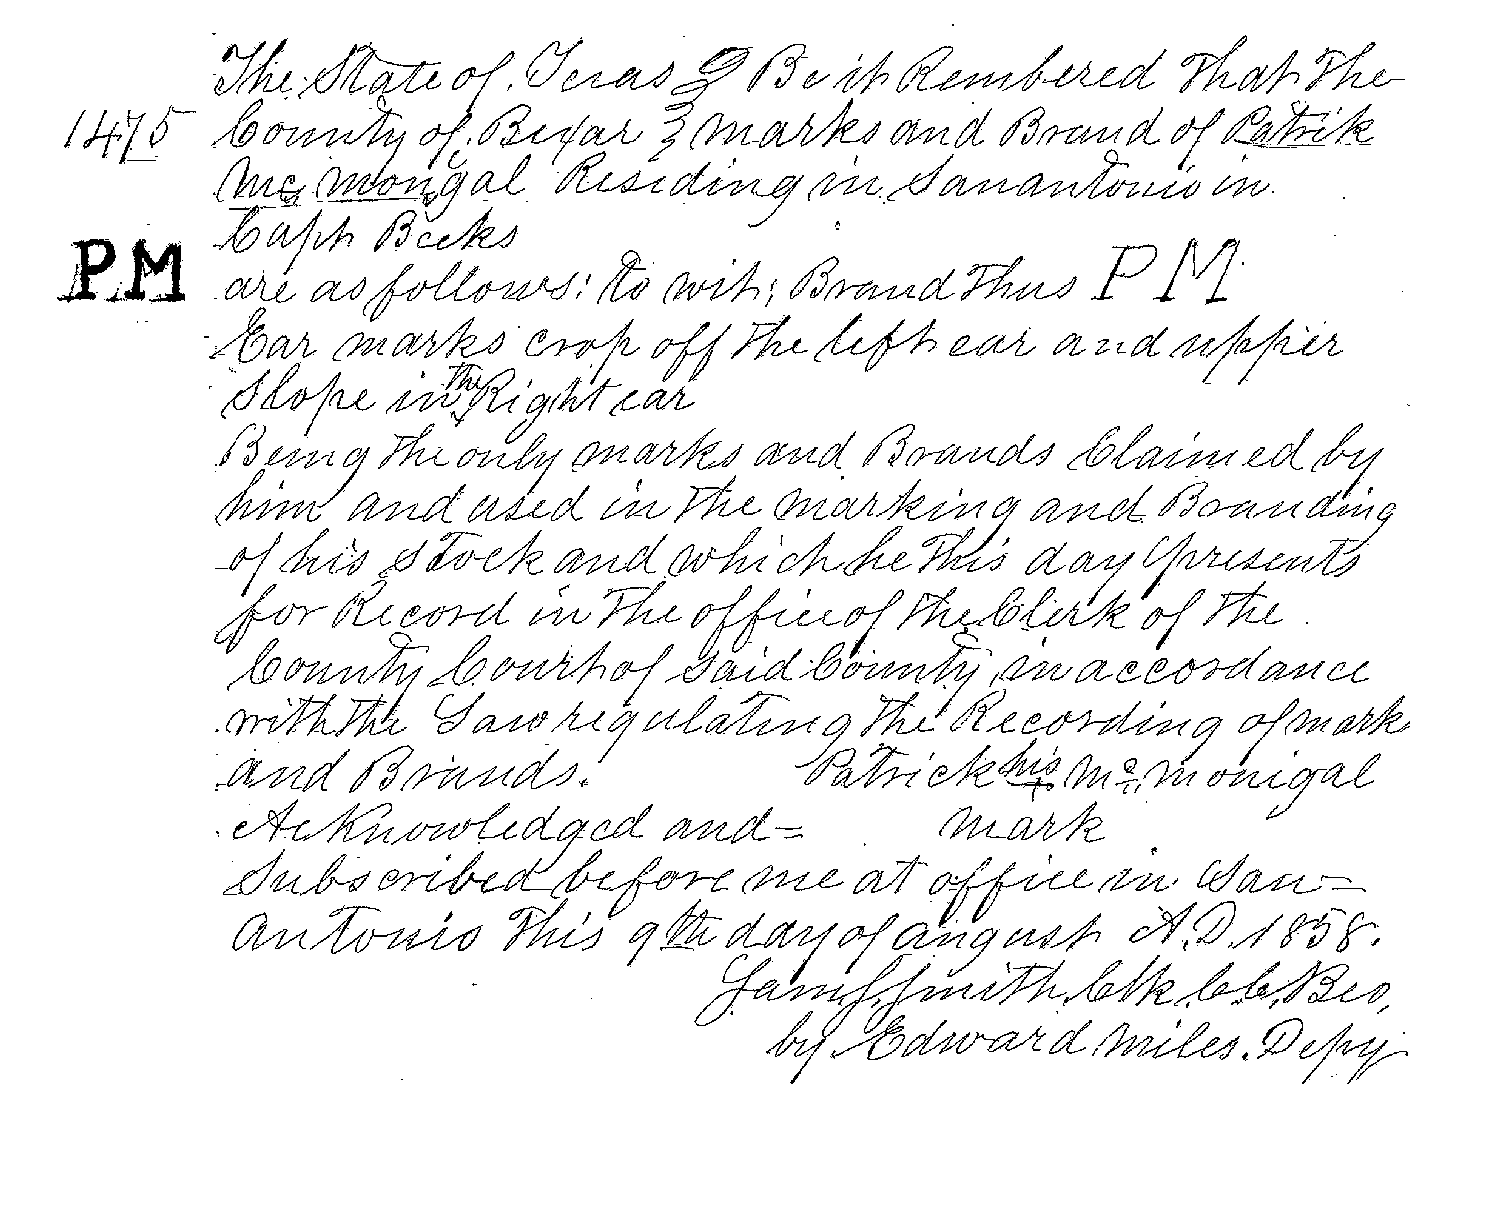 The State of Texas } Be it Rembered That The
1475 County of Bexar } marks and Brand of Patrik
Mc mongal Residing in Sanantonio in
Capt Beeks
PM are as follows: to wit; Brand Thus PM
Ear marks crop off the left ear and upper
Slope in the Right ear
Being The only marks and Brands Claimed by
him and used in The marking and Branding
of his Stock and which he This day presents
for Record in The office of the Clerk of the
County Court of said County, in accordance
with the Law regulating the Recording of mark
and Brands. Patrick his Mc monigal
Acknowledged and= mark
Subscribed before me at office in San=
Antonio This 9th day of august A.D. 1858.
Sam S. Smith, Clk C.C. Bco,
by Edward Miles. Depy